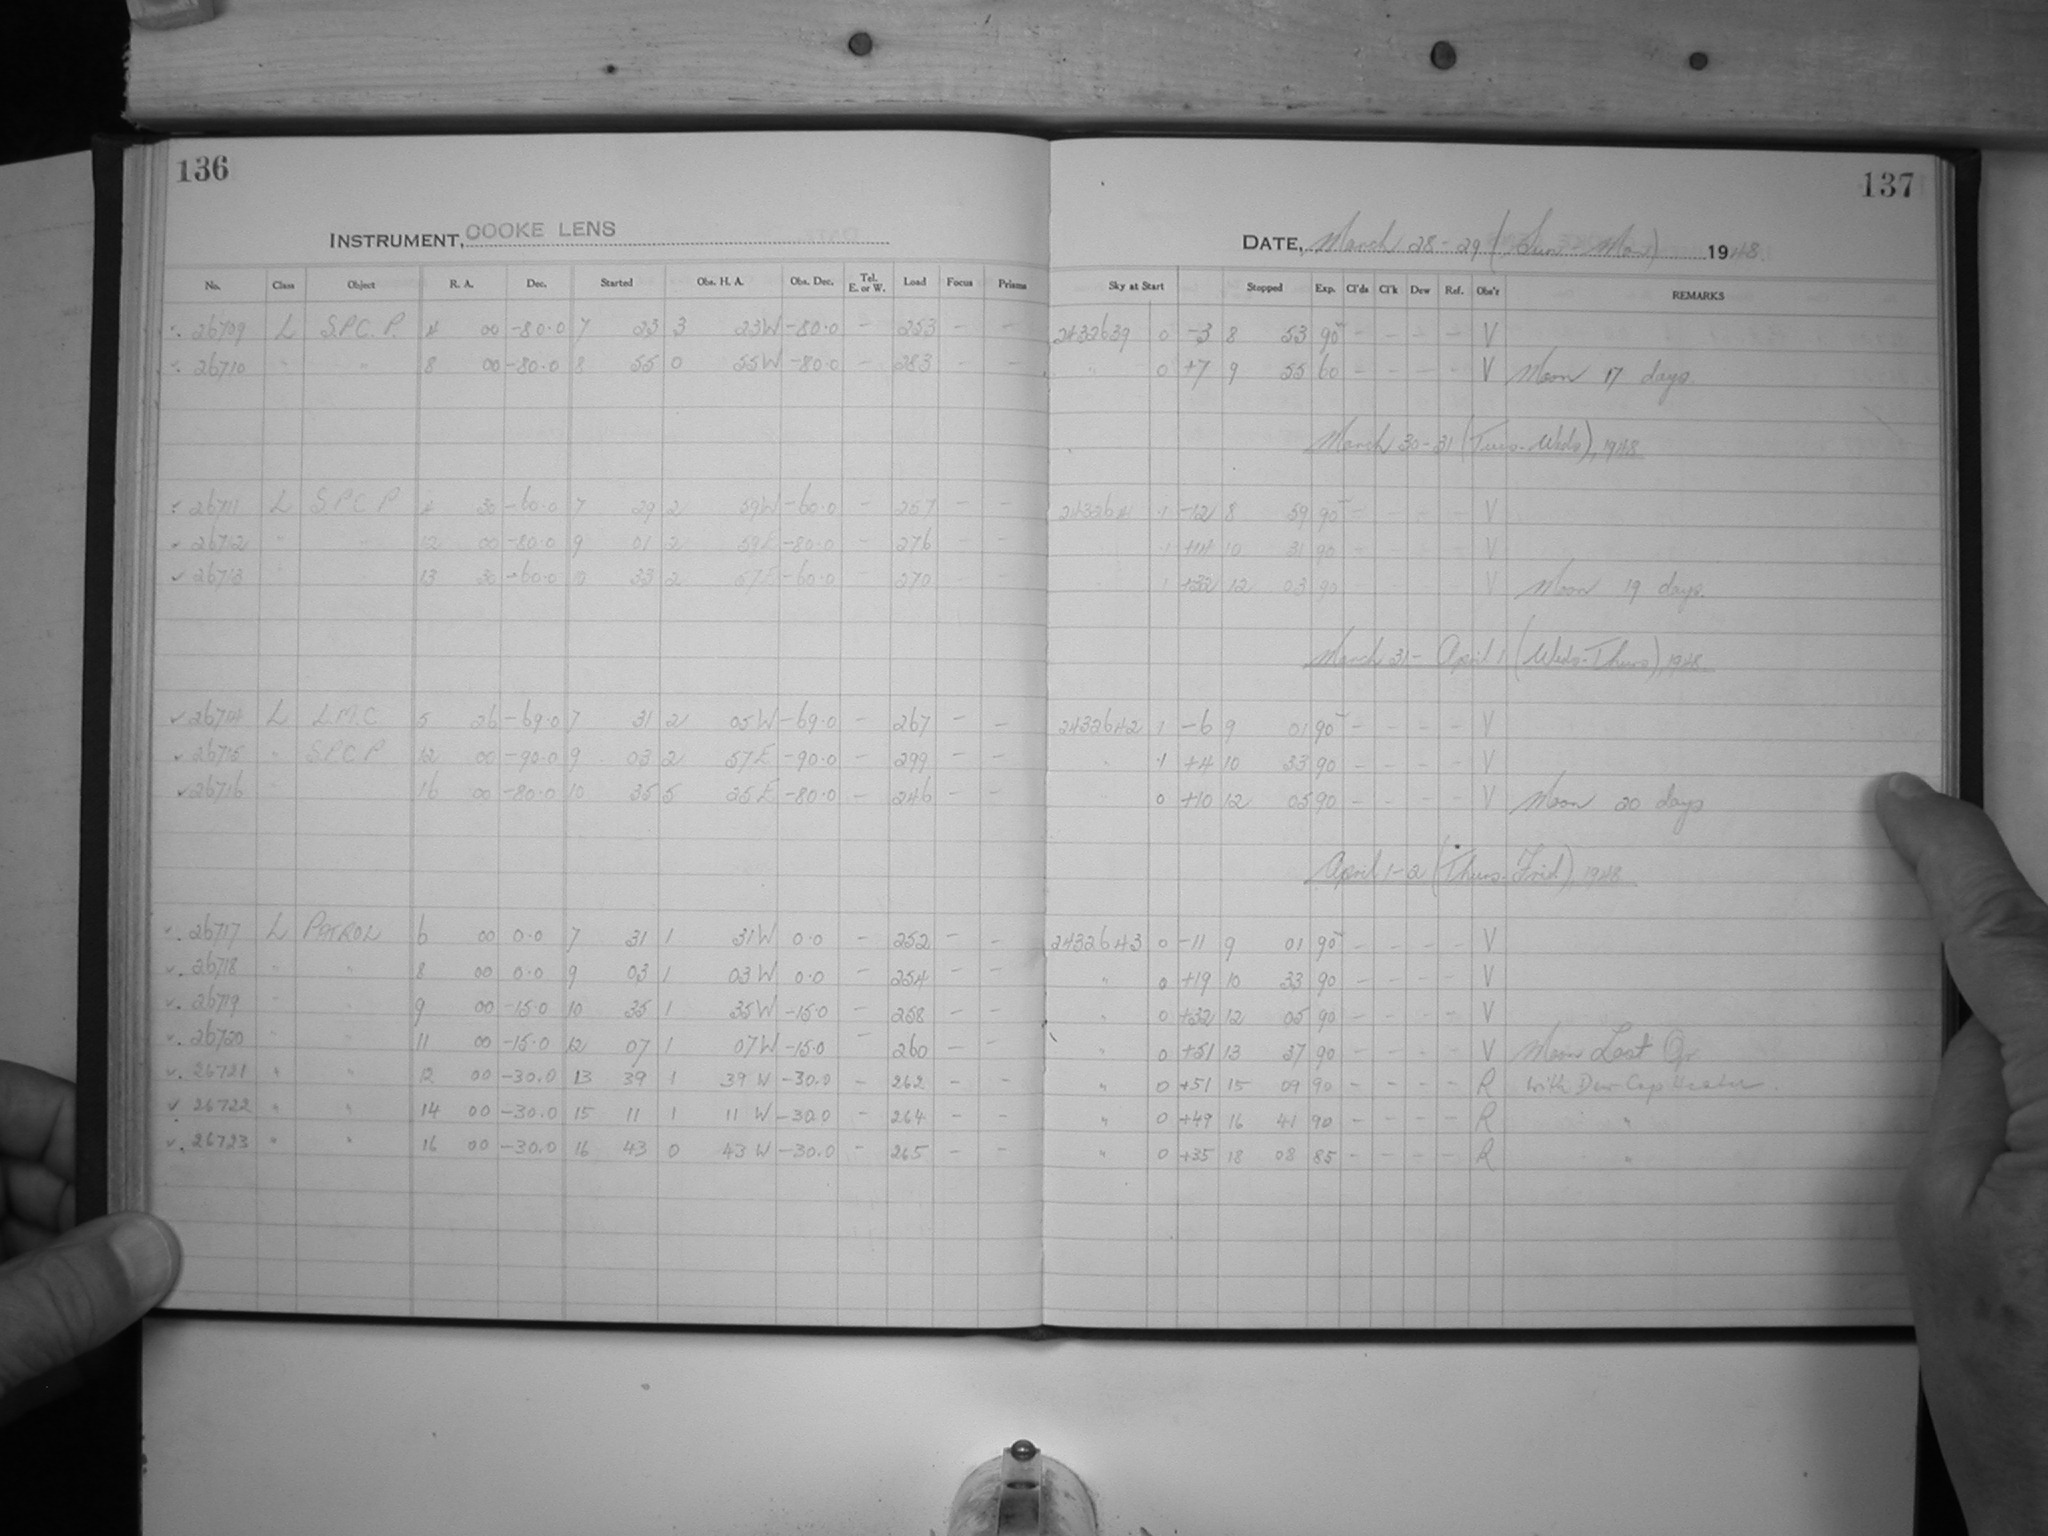 136
137
INSTRUMENT, COOKE LENS
DATE, March 28-29 (Sun - Mon) 1948.
No. Class Object R. A. Dec. Started Obs. H. A. Obs. Dec. Tel. E. or W. Load Focus Prisms Sky at Start Stopped Exp. Cl'ds Cl'k Dew Ref. Obs'r REMARKS
26709 L S.P.C.P. 4 00 -80.0 7 23 3 23W -80.0 - 253 - - 2432639 0 -3 8 53 90 - - - - V
26710 " " 8 00 -80.0 8 55 0 55W -80.0 - 283 - - " 0 +7 9 55 60 - - - - V Moon 17 days.
March 30-31 (Tues-Weds), 1948
26711 L S.P.C.P 4 30 -60.0 7 29 2 59W -60.0 - 257 - - 2432641 -12 8 59 90 - - - - V
26712 " " 12 00 -80.0 9 01 2 59E -80.0 - 276 - - " 1 +14 10 31 90 - - - - V
26713 " " 13 30 -60.0 10 33 2 57E -60.0 - 270 - - " 1 +32 12 03 90 - - - - V Moon 19 days.
March 31 - April 1 (Weds-Thurs), 1948
26714 L L.M.C. 5 26 -69.0 7 31 2 05W -69.0 - 267 - - 2432642 1 -6 9 01 90 - - - - V
26715 " S.P.C.P 12 00 -90.0 9 03 2 57E -90.0 - 299 - - " 1 +4 10 33 90 - - - - V
26716 " 16 00 -80.0 10 35 5 25E -80.0 - 246 - - " 0 +10 12 05 90 - - - - V Moon 20 days
April 1-2 (Thurs-Frid.), 1948
26717 L PATROL 6 00 0.0 7 31 1 31W 0.0 - 252 - - 2432643 0 -11 9 01 90 - - - - V
26718 " " 8 00 0.0 9 03 1 03W 0.0 - 254 - - " 0 +19 10 33 90 - - - - V
26719 " " 9 00 -15.0 10 35 1 35W -15.0 - 258 - - " 0 +32 12 05 90 - - - - V
26720 " " 11 00 -15.0 12 07 1 07W -15.0 - 260 - - " 0 +51 13 37 90 - - - - V Moon Last Qr.
26721 " " 12 00 -30.0 13 39 1 39W -30.0 - 262 - - " 0 +51 15 09 90 - - - - R with Dew Cap Heater.
26722 " " 14 00 -30.0 15 11 1 11W -30.0 - 264 - - " 0 +49 16 41 90 - - - - R "
26723 " " 16 00 -30.0 16 43 0 43W -30.0 - 265 - - " 0 +35 18 08 85 - - - - R "